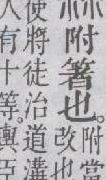 㳄附箸也。附當
使將徒治道溝
人有十等。輿臣
改也